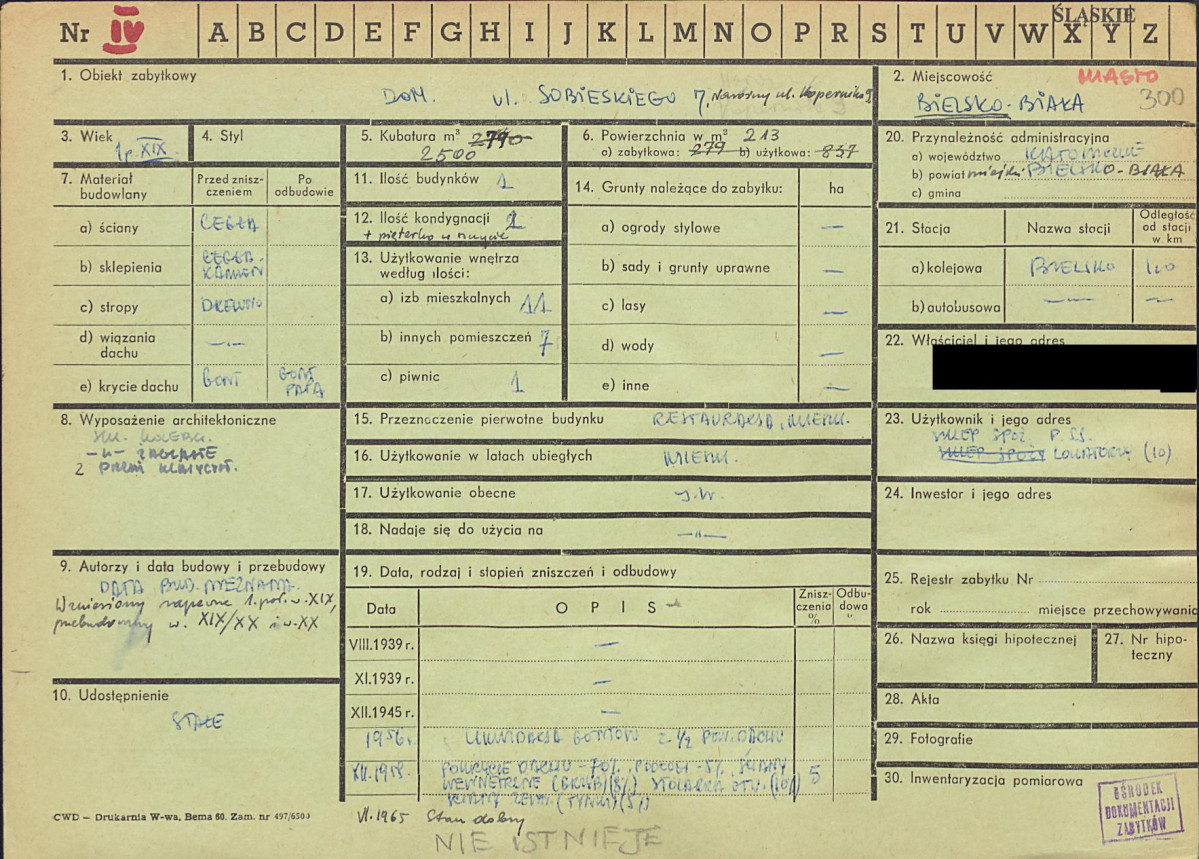 Nr IV A B C D E F G H I J K L M N O P R S T U V W X Y Z
ŚLĄSKIE
1. Obiekt zabytkowy
DOM. ul. SOBIESKIEGO 7, Narożny ul. Kopernika 9
2. Miejscowość
MIASTO
BIELSKO-BIAŁA 300
3. Wiek
1 p. XIX.
4. Styl
5. Kubatura m³ 2790
2500
6. Powierzchnia w m² 213
a) zabytkowa: 279 b) użytkowa: 837
7. Materiał budowlany
Przed zniszczeniem
Po odbudowie
a) ściany CEGŁA
b) sklepienia CEGŁA-
KAMIEŃ
c) stropy DREWNO
d) wiązania dachu -„-
e) krycie dachu GONT GONT
PAPA
8. Wyposażenie architektoniczne
SKL. KOLEBK.
-„- ŻAGLASTE
2
9. Autorzy i data budowy i przebudowy
DATA BUD. NIEZNANA.
Wzniesiony zapewne 1. poł. w. XIX,
przebudowany w. XIX/XX i w. XX
10. Udostępnienie
STAŁE
11. Ilość budynków 1
12. Ilość kondygnacji 1
+ pięterko w szczycie
13. Użytkowanie wnętrza
według ilości:
a) izb mieszkalnych 11
b) innych pomieszczeń 7
c) piwnic 1
14. Grunty należące do zabytku: ha
a) ogrody stylowe —
b) sady i grunty uprawne —
c) lasy —
d) wody —
e) inne —
15. Przeznaczenie pierwotne budynku RESTAURACJA, MIESZK.
16. Użytkowanie w latach ubiegłych MIESZK.
17. Użytkowanie obecne J.W.
18. Nadaje się do użycia na -„-
19. Data, rodzaj i stopień zniszczeń i odbudowy
Data OPIS Zniszczenia % Odbudowa "
VIII.1939 r. —
XI.1939 r. —
XII.1945 r. —
1956 r. LIKWIDACJA GONTÓW Z 1/2 POW. DACHU
XII.1958. POKRYCIE DACHU - 70%, PODŁOGI - 5%, ŚCIANY 5
WEWNĘTRZNE (5%) STOLARKA OTW. (10%)
ŚCIANY ZEWN. (TYNKI) (5%)
VI.1965 Stan dobry
NIE ISTNIEJE
20. Przynależność administracyjna
a) województwo KATOWICKIE
b) powiat miejski BIELSKO-BIAŁA
c) gmina
21. Stacja Nazwa stacji Odległość od stacji w km
a) kolejowa BIELSKO 1,0
b) autobusowa -„- -„-
22. Właściciel i jego adres
23. Użytkownik i jego adres
SKLEP SPOŻ. P.S.S.
SKLEP SPOŻY LOKATORZY (10)
24. Inwestor i jego adres
25. Rejestr zabytku Nr
rok miejsce przechowywania
26. Nazwa księgi hipotecznej
27. Nr hipoteczny
28. Akta
29. Fotografie
30. Inwentaryzacja pomiarowa
OŚRODEK
DOKUMENTACJI
ZABYTKÓW
CWD – Drukarnia W-wa, Bema 60. Zam. nr 497/6500